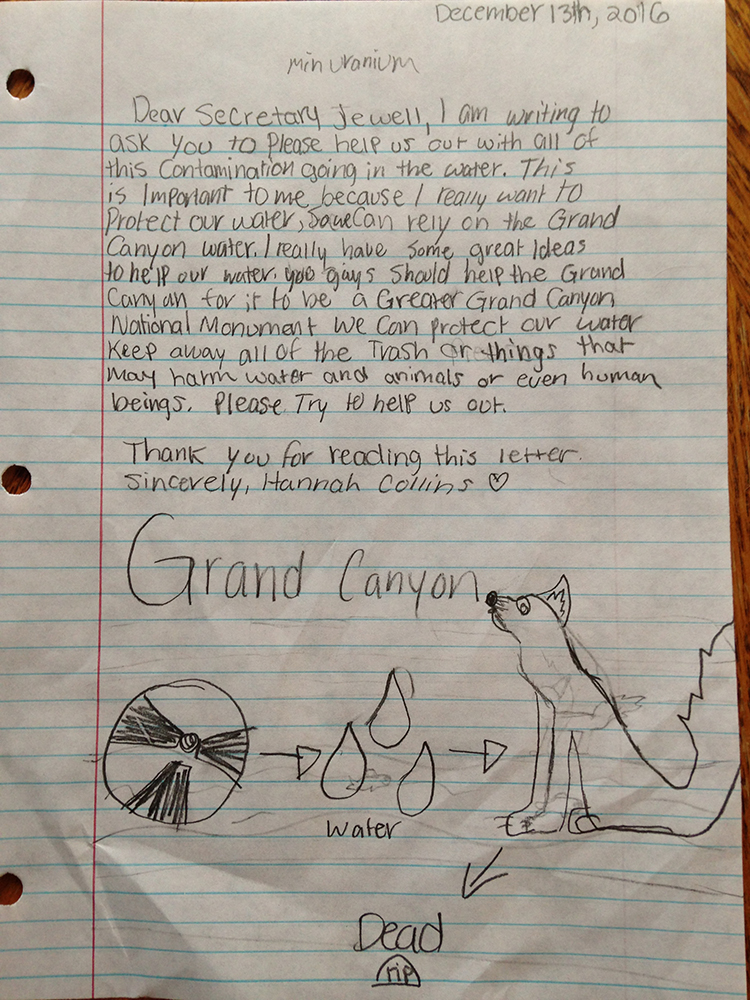 December 13th, 2016
min uranium
Dear Secretary Jewell, I am writing to
ask you to Please help us out with all of
this Contamination going in the water. This
is Important to me because I really want to
Protect our water, So we Can rely on the Grand
Canyon water. I really have some great Ideas
to help our water. you guys Should help the Grand
Canyon for it to be a Greater Grand Canyon
National Monument We Can protect our water
Keep away all of the Trash or things that
May harm water and animals or even human
beings. Please Try to help us out.
Thank you for reading this letter.
Sincerely, Hannah Collins ♡
Grand Canyon
Water
Dead
rip